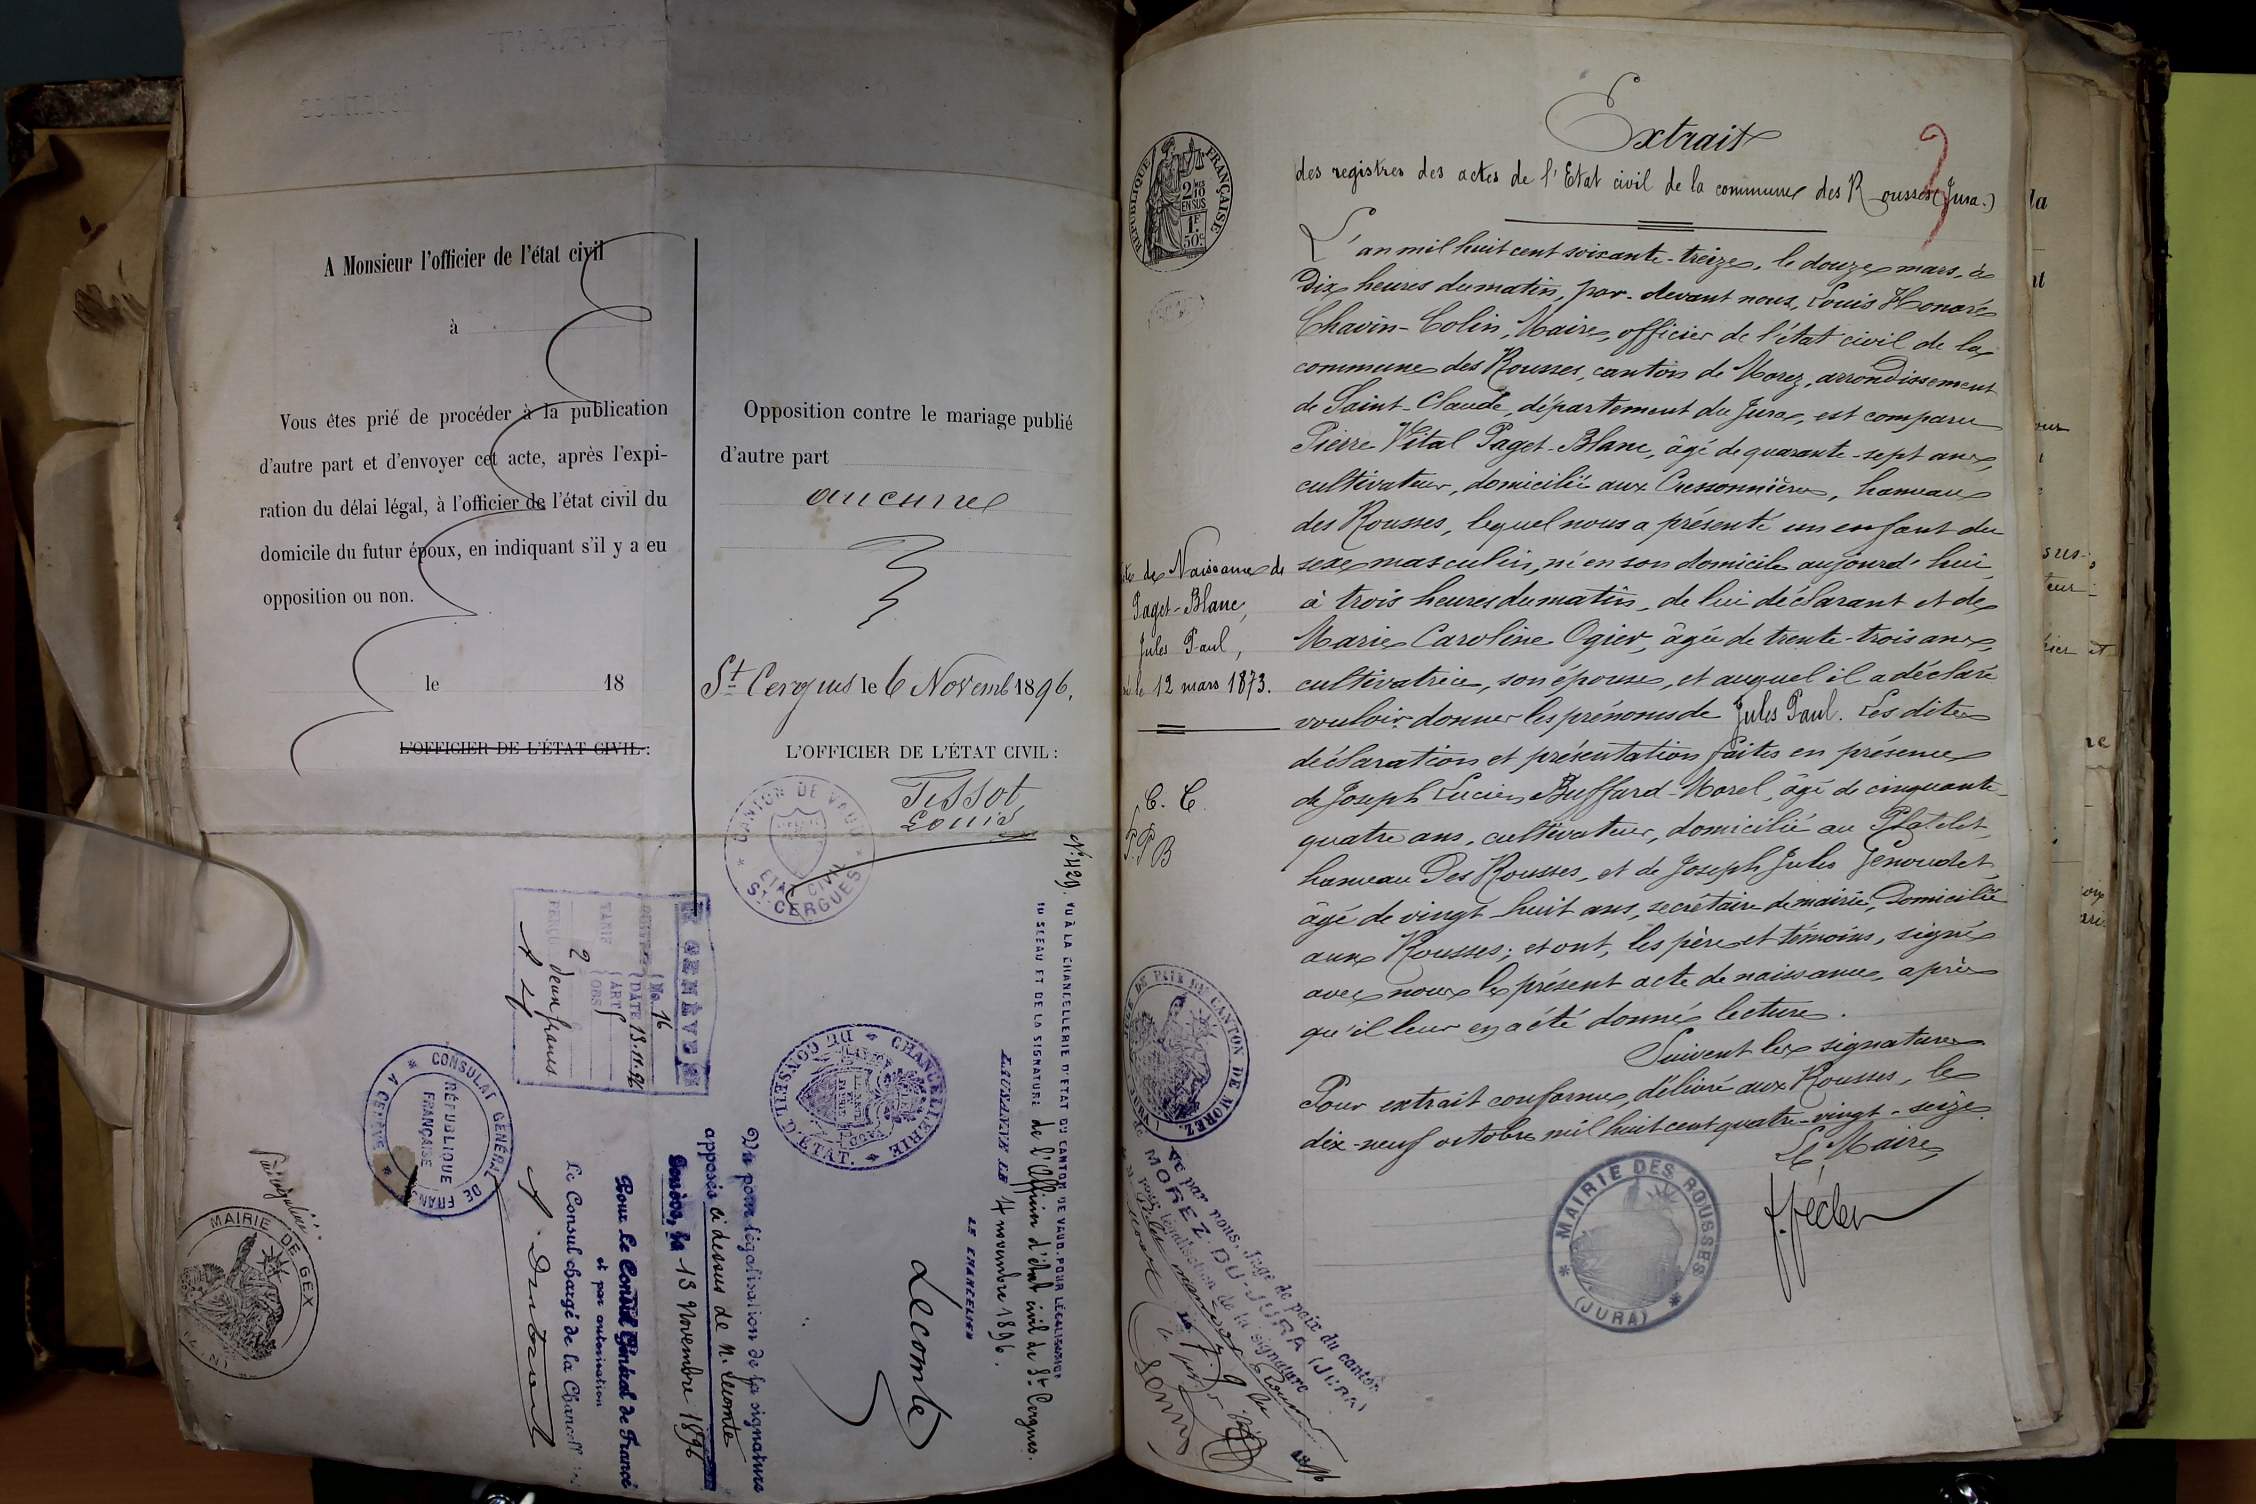 A Monsieur l'officier de l'état civil
à
Vous êtes prié de procéder à la publication
d'autre part et d'envoyer cet acte, après l'expi-
ration du délai légal, à l'officier de l'état civil du
domicile du futur époux, en indiquant s'il y a eu
opposition ou non.
le 18
L'OFFICIER DE L'ÉTAT CIVIL :
Opposition contre le mariage publié
d'autre part
aucune
St Cergues le 6 Novemb 1896.
L'OFFICIER DE L'ÉTAT CIVIL :
Tissot
Louis
CANTON DE VAUD
ETAT CIVIL
ST CERGUES
No 429. VU À LA CHANCELLERIE D'ETAT DU CANTON DE VAUD, POUR LÉGALISATION
DU SCEAU ET DE LA SIGNATURE de l'Officier d'état civil de St Cergues.
LAUSANNE LE 4 novembre 1896.
LE CHANCELIER
Lecomte
CHANCELLERIE DU CONSEIL D'ÉTAT.
Vu pour légalisation de la signature
apposée ci dessus de M. Lecomte
Genève, le 13 Novembre 1896
Pour Le Consul Général de France
et par autorisation
Le Consul chargé de la Chancell
GENÈVE
No. 16
DATE 13.11.96
TARIF
ART
OBS
2 deux francs
CONSULAT GÉNÉRAL DE FRANCE
A GENÈVE
RÉPUBLIQUE
FRANÇAISE
MAIRIE DE GEX
(AIN)
Extrait
des registres des actes de l'Etat civil de la commune des Rousses (Jura.)
RÉPUBLIQUE FRANÇAISE
2/10
EN SUS
1F
50c
L'an mil huit cent soixante-treize, le douze mars, à
dix heures du matin, par-devant nous, Louis Honoré
Chavin-Colin, Maire, officier de l'état civil de la
commune des Rousses, canton de Morez, arrondissement
de Saint-Claude, département du Jura, est comparu
Pierre Vital Paget-Blanc, âgé de quarante-sept ans,
cultivateur, domicilié aux Cressonnières, hameau
des Rousses, lequel nous a présenté un enfant du
sexe masculin, né en son domicile aujourd'hui,
à trois heures du matin, de lui déclarant et de
Marie Caroline Ogier, âgée de trente-trois ans,
cultivatrice, son épouse, et auquel il a déclaré
vouloir donner les prénoms de Jules Paul. Les dites
déclaration et présentation faites en présence
de Joseph Lucien Buffard-Morel, âgé de cinquante-
quatre ans, cultivateur, domicilié au Platelet,
hameau Des Rousses, et de Joseph Jules Jenoudet,
âgé de vingt-huit ans, secrétaire de mairie, domicilié
aux Rousses; et ont, les père et témoins, signé
avec nous le présent acte de naissance, après
qu'il leur en a été donné lecture.
Suivent les signatures
Pour extrait conforme, délivré aux Rousses, le
dix-neuf octobre mil huit cent quatre-vingt-seize.
Le Maire,
MAIRIE DES ROUSSES
(JURA)
de Naissance de
Paget-Blanc,
Jules Paul,
né le 12 mars 1873.
C. C.
P. P B
DE PAIX DU CANTON DE MOREZ
par nous, Juge de paix du canton
MOREZ-DU-JURA (JURA)
pour légalisation de la signature